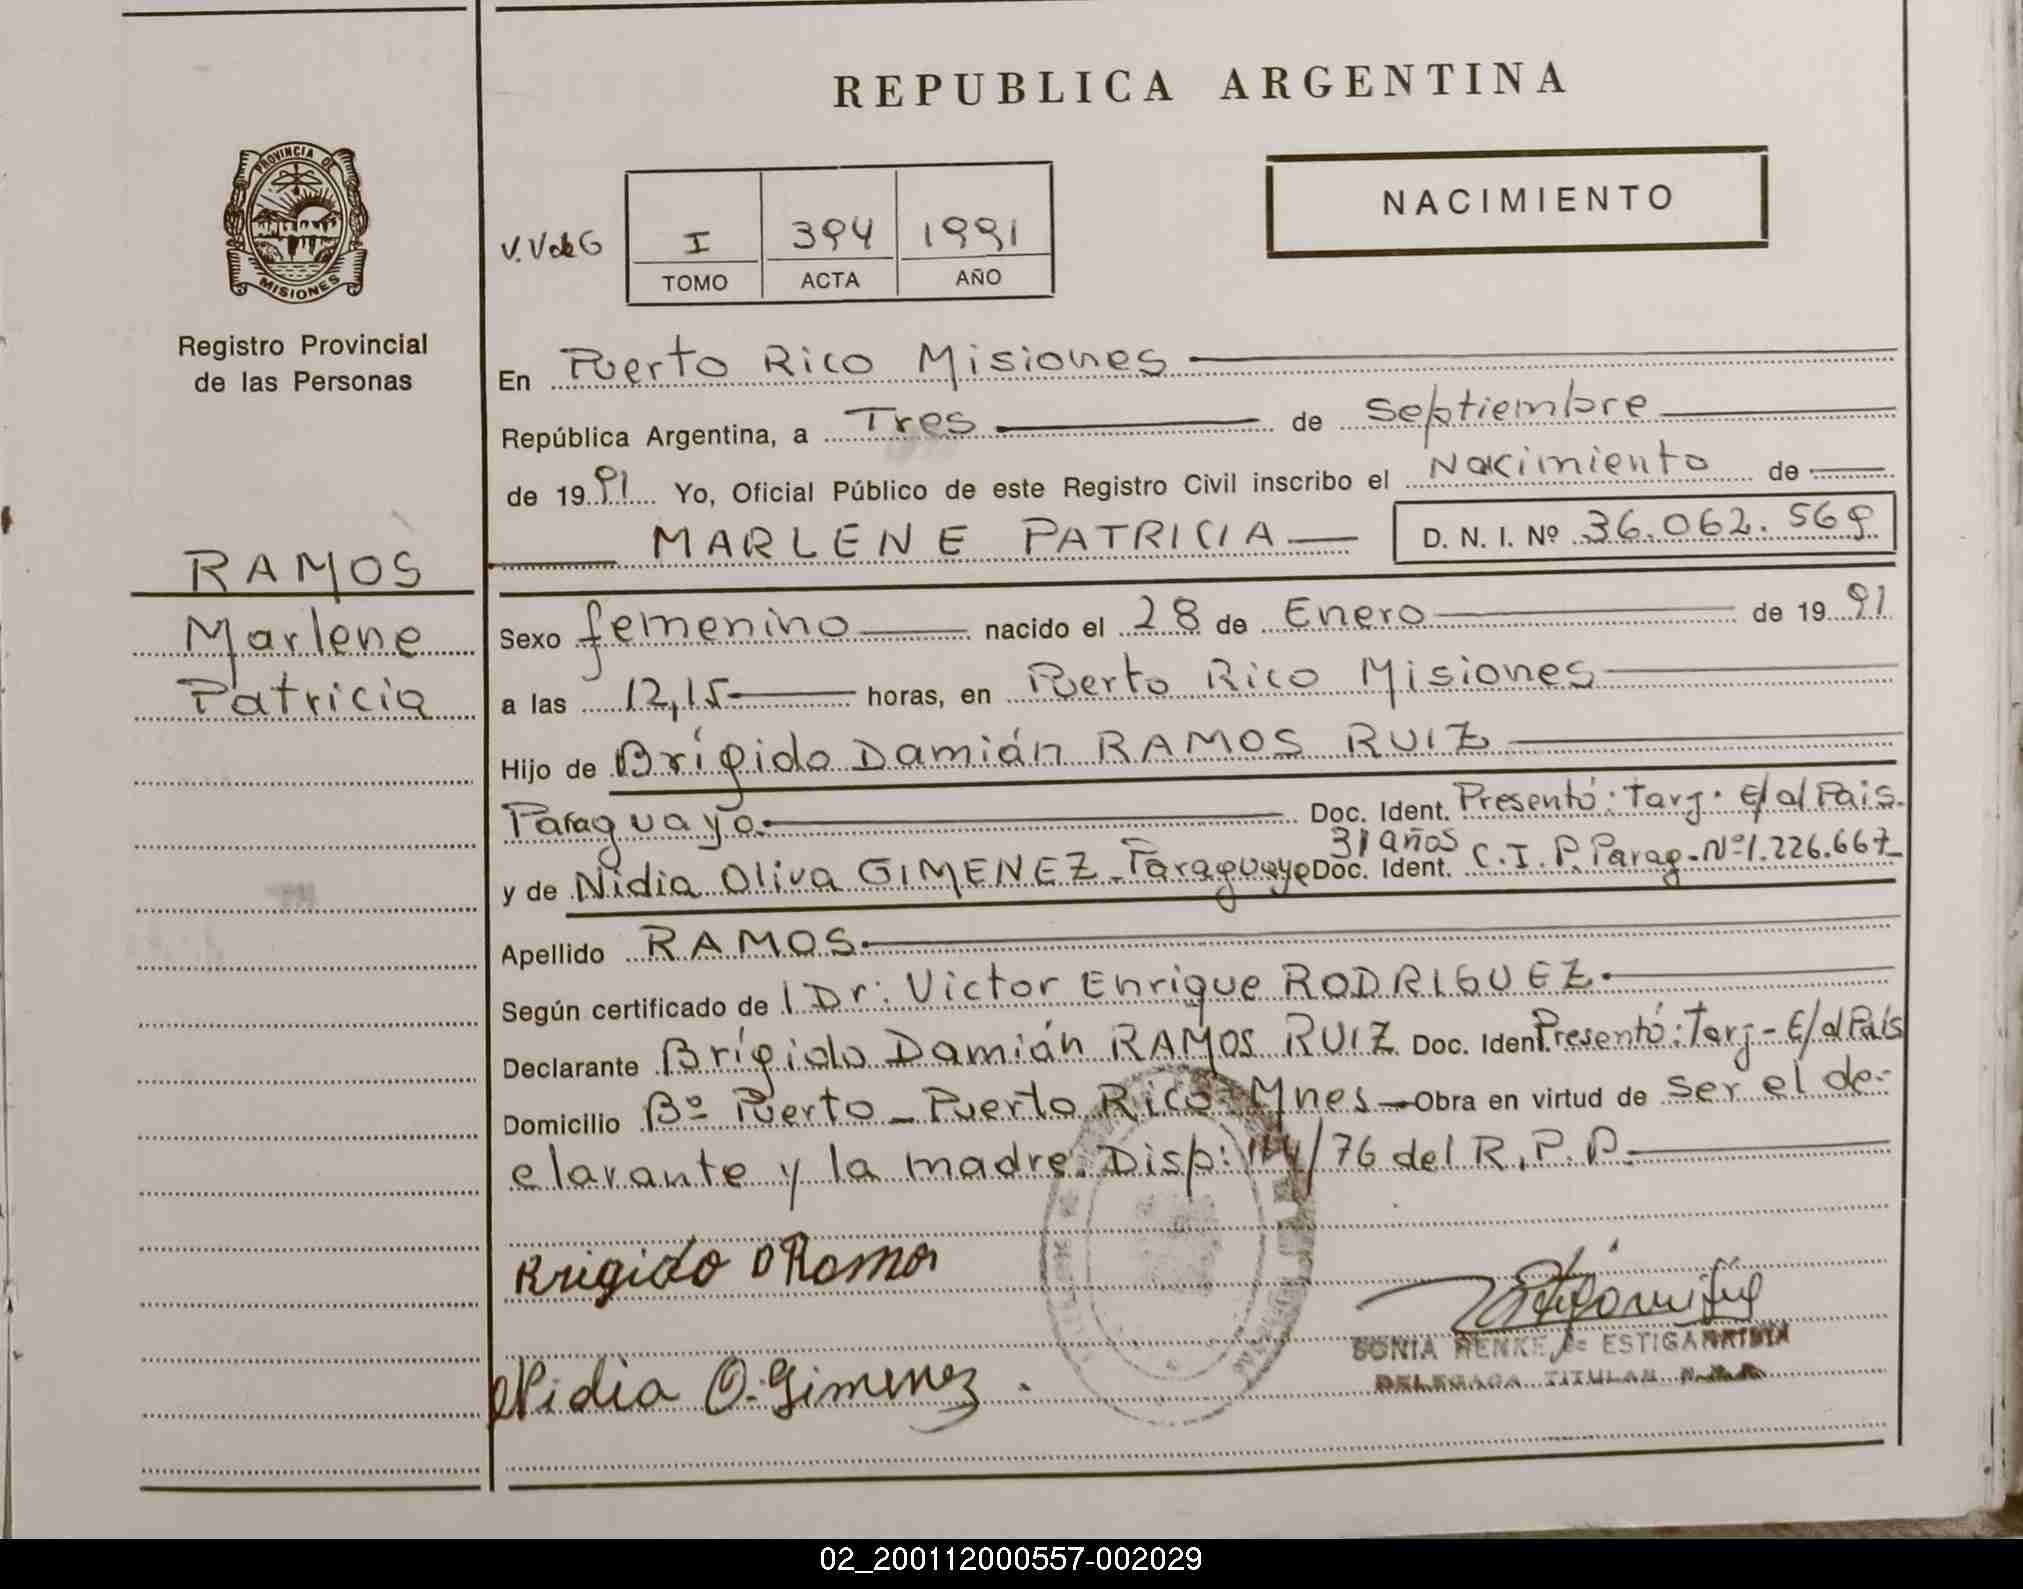 REPUBLICA ARGENTINA
PROVINCIA DE
MISIONES
NACIMIENTO
V.V de G
I 394 1991
TOMO ACTA AÑO
Registro Provincial
de las Personas
RAMOS
Marlene
Patricia
En Puerto Rico Misiones
República Argentina, a Tres de Septiembre
de 1991 Yo, Oficial Público de este Registro Civil inscribo el Nacimiento de
MARLENE PATRICIA D. N. I. Nº 36.062.569
Sexo femenino nacido el 28 de Enero de 1991
a las 12,15 horas, en Puerto Rico Misiones
Hijo de Brígido Damián RAMOS RUIZ
Paraguayo. Doc. Ident. Presentó: Tarj. E/al País.
31 años
y de Nidia Oliva GIMENEZ - Paraguaya Doc. Ident. C.I.P. Parag. Nº 1.226.667
Apellido RAMOS.
Según certificado de Dr: Victor Enrique RODRIGUEZ.
Declarante Brígido Damián RAMOS RUIZ Doc. Ident. Presentó: Tarj- E/al País
Domicilio Bº Puerto - Puerto Rico Mnes - Obra en virtud de ser el de-
clarante y la madre. Disp: /76 del R.P.P.
Brigido D Ramos
Nidia O. Gimenez.
SONIA HENKE de ESTIGARRIBIA
DELEGADA TITULAR
02_200112000557-002029